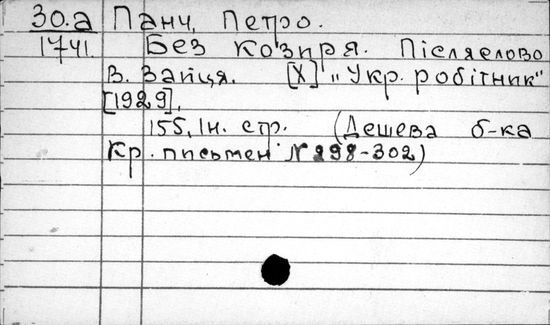 30.а Панч, Петро.
1741. Без козиря. Післяслово
В. Зайця. [Х] „Укр. робітник"
[1929].
155, 1н. стр. (Дешева б-ка
Кр. письмен № 298-302)